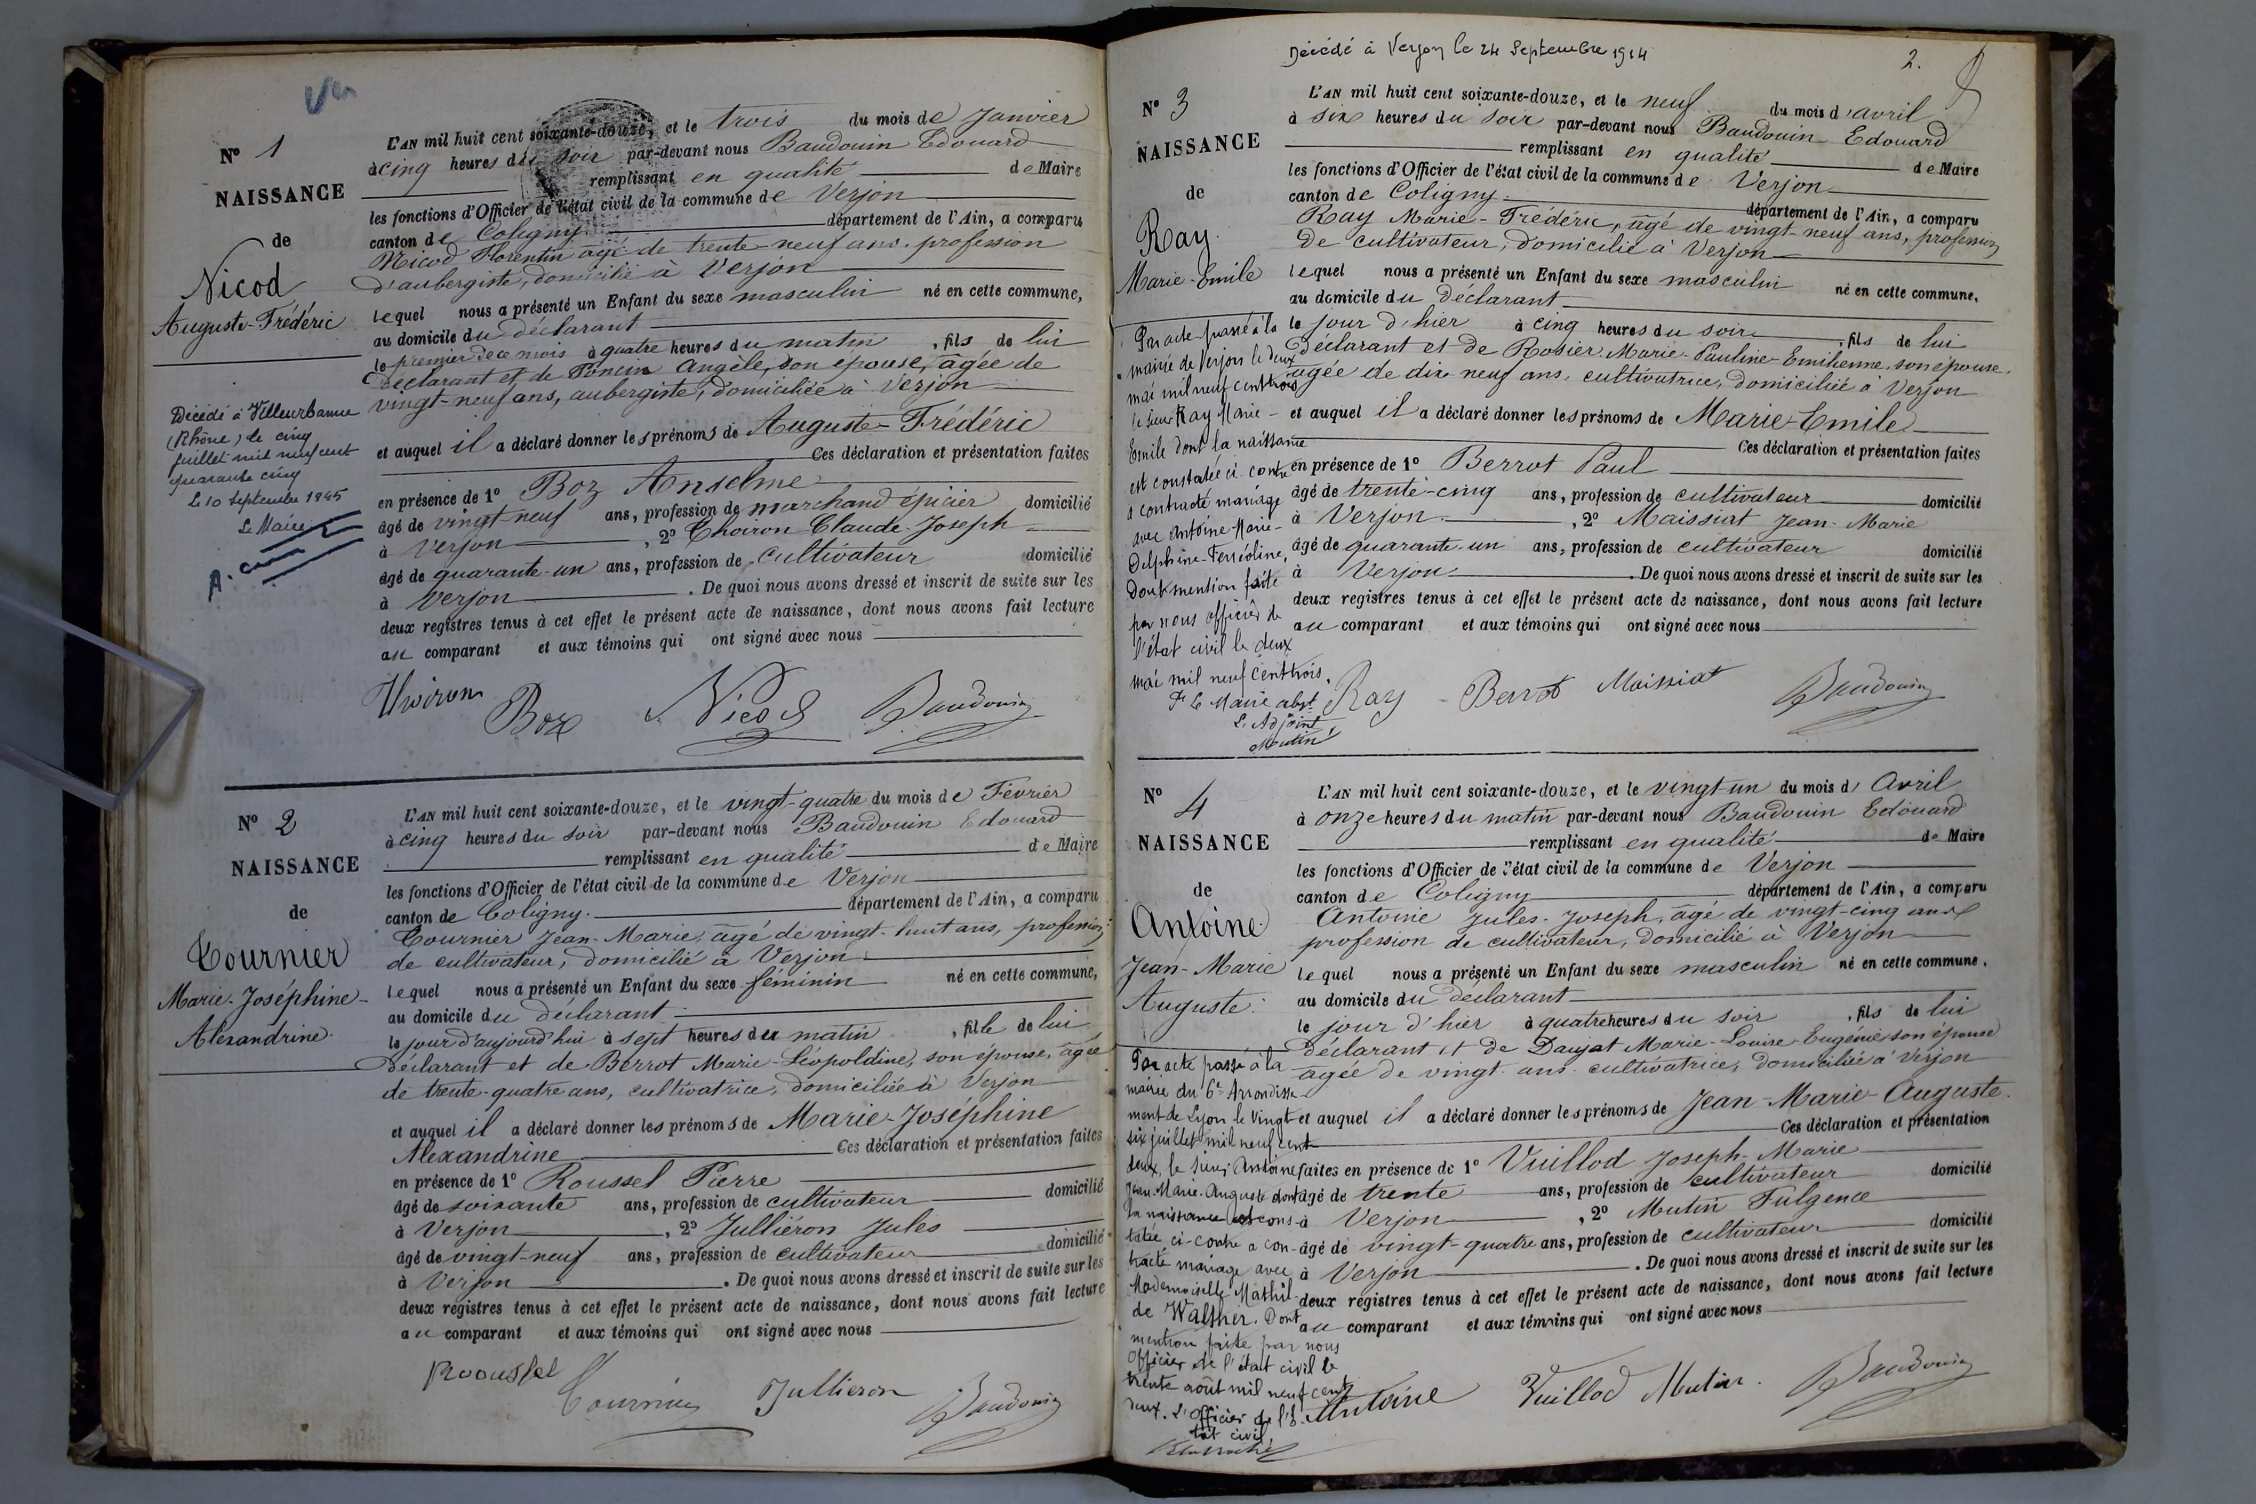 N° 1
NAISSANCE
de
Nicod
Auguste-Frédéric
Décédé à Villeurbanne
(Rhône) le cinq
juillet mil neuf cent
quarante cinq
Le 10 Septembre 1945
Le Maire
L'AN mil huit cent soixante-douze, et le trois du mois de Janvier
à cinq heures du soir par-devant nous Baudouin Edouard
remplissant en qualité de Maire
les fonctions d'Officier de l'état civil de la commune de Verjon
canton de Coligny département de l'Ain, a comparu
Nicod Florentin âgé de trente-neuf ans, profession
d'aubergiste, domicilié à Verjon
lequel nous a présenté un Enfant du sexe masculin né en cette commune,
au domicile du déclarant
le premier de ce mois à quatre heures du matin, fils de lui
déclarant et de Poncin Angèle, son épouse, âgée de
vingt-neuf ans, aubergiste, domiciliée à Verjon
et auquel il a déclaré donner les prénoms de Auguste-Frédéric
Ces déclaration et présentation faites
en présence de 1° Boz Anselme
âgé de vingt-neuf ans, profession de marchand épicier domicilié
à Verjon, 2° Thoiron Claude-Joseph
âgé de quarante-un ans, profession de cultivateur domicilié
à Verjon. De quoi nous avons dressé et inscrit de suite sur les
deux registres tenus à cet effet le présent acte de naissance, dont nous avons fait lecture
au comparant et aux témoins qui ont signé avec nous
Thoiron Boz Nicod Baudouin
N° 2
NAISSANCE
de
Tournier
Marie-Joséphine-
Alexandrine
L'AN mil huit cent soixante-douze, et le vingt-quatre du mois de Février
à cinq heures du soir par-devant nous Baudouin Edouard
remplissant en qualité de Maire
les fonctions d'Officier de l'état civil de la commune de Verjon
canton de Coligny. département de l'Ain, a comparu
Tournier Jean-Marie, âgé de vingt-huit ans, profession
de cultivateur, domicilié à Verjon
lequel nous a présenté un Enfant du sexe féminin né en cette commune,
au domicile du déclarant
le jour d'aujourd'hui à sept heures du matin, fille de lui
déclarant et de Berrot Marie-Léopoldine, son épouse, âgée
de trente-quatre ans, cultivatrice, domiciliée à Verjon
et auquel il a déclaré donner les prénoms de Marie-Joséphine
Alexandrine Ces déclaration et présentation faites
en présence de 1° Roussel Pierre
âgé de soixante ans, profession de cultivateur domicilié
à Verjon, 2° Julliéron Jules
âgé de vingt-neuf ans, profession de cultivateur domicilié
à Verjon. De quoi nous avons dressé et inscrit de suite sur les
deux registres tenus à cet effet le présent acte de naissance, dont nous avons fait lecture
au comparant et aux témoins qui ont signé avec nous
Roousset Tournier Jullieron Baudouin
Décédé à Verjon le 24 Septembre 1914
2.
N° 3
NAISSANCE
de
Ray
Marie-Emile
Par acte passé à la
mairie de Verjon le deux
mai mil neuf cent trois
le sieur Ray Marie-
Emile dont la naissance
est constatée ci-contre
a contracté mariage
avec Antoine Marie-
Delphine-Ferréoline,
dont mention faite
par nous officier de
l'état civil le deux
mai mil neuf cent trois.
Pr Le Maire abst
L'Adjoint
Mutin
L'AN mil huit cent soixante-douze, et le neuf du mois d'avril
à six heures du soir par-devant nous Baudouin Edouard
remplissant en qualité de Maire
les fonctions d'Officier de l'état civil de la commune de Verjon
canton de Coligny département de l'Ain, a comparu
Ray Marie-Frédéric, âgé de vingt-neuf ans, profession
de cultivateur, domicilié à Verjon
lequel nous a présenté un Enfant du sexe masculin né en cette commune,
au domicile du déclarant
le jour d'hier à cinq heures du soir, fils de lui
déclarant et de Rosier Marie-Pauline-Emilienne, son épouse,
âgée de dix-neuf ans, cultivatrice, domiciliée à Verjon
et auquel il a déclaré donner les prénoms de Marie-Emile
Ces déclaration et présentation faites
en présence de 1° Berrot Paul
âgé de trente-cinq ans, profession de cultivateur domicilié
à Verjon, 2° Maissiat Jean-Marie
âgé de quarante-un ans, profession de cultivateur domicilié
à Verjon. De quoi nous avons dressé et inscrit de suite sur les
deux registres tenus à cet effet le présent acte de naissance, dont nous avons fait lecture
au comparant et aux témoins qui ont signé avec nous
Ray Berrot Maissiat Baudouin
N° 4
NAISSANCE
de
Antoine
Jean-Marie
Auguste.
Par acte passé à la
mairie du 6e Arrondisse-
ment de Lyon le vingt-
six juillet mil neuf cent
deux, le sieur Antoine
Jean-Marie-Auguste dont
la naissance est cons-
tatée ci-contre a con-
tracté mariage avec
Mademoiselle Mathil-
de Walther. Dont
mention faite par nous
Officier de l'état civil le
trente août mil neuf cent
deux. L'Officier de l'é-
tat civil
L'AN mil huit cent soixante-douze, et le vingt-un du mois d'Avril
à onze heures du matin par-devant nous Baudouin Edouard
remplissant en qualité de Maire
les fonctions d'Officier de l'état civil de la commune de Verjon
canton de Coligny département de l'Ain, a comparu
Antoine Jules-Joseph, âgé de vingt-cinq ans
profession de cultivateur, domicilié à Verjon
lequel nous a présenté un Enfant du sexe masculin né en cette commune,
au domicile du déclarant
le jour d'hier à quatre heures du soir, fils de lui
déclarant et de Daujat Marie-Louise-Eugénie, son épouse
âgée de vingt ans cultivatrice, domiciliée à Verjon
et auquel il a déclaré donner les prénoms de Jean-Marie-Auguste.
Ces déclaration et présentation
faites en présence de 1° Vuillod Joseph-Marie
âgé de trente ans, profession de cultivateur domicilié
à Verjon, 2° Mutin Fulgence
âgé de vingt-quatre ans, profession de cultivateur domicilié
à Verjon. De quoi nous avons dressé et inscrit de suite sur les
deux registres tenus à cet effet le présent acte de naissance, dont nous avons fait lecture
au comparant et aux témoins qui ont signé avec nous
Antoine Vuillod Mutin Baudouin